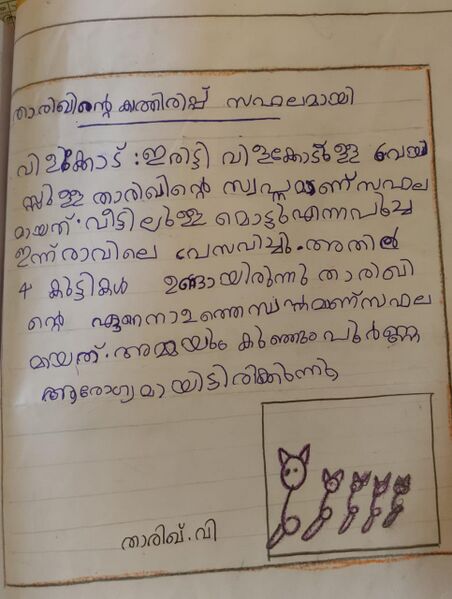 താരിഖിന്റെ കാത്തിരിപ്പ് സഫലമായി
വിളക്കോട് : ഇരിട്ടി വിളകോടുള്ള 6 വയ
സ്സുള്ള താരിഖിന്റെ സ്വപ്നമാണ് സഫല
മായത്. വീട്ടിലുള്ള മൊട്ടുഎന്നപൂച്ച
ഇന്ന് രാവിലെ പ്രസവിച്ചു. അതിൽ
4 കുട്ടികൾ ഉണ്ടായിരുന്നു താരിഖി
ന്റെ ഏറെനാളത്തെ സ്വപ്നമാണ് സഫല
മായത്. അമ്മയും കുഞ്ഞും പൂർണ്ണ
ആരോഗ്യമായിട്ടിരിക്കുന്നു
താരിഖ്. വി